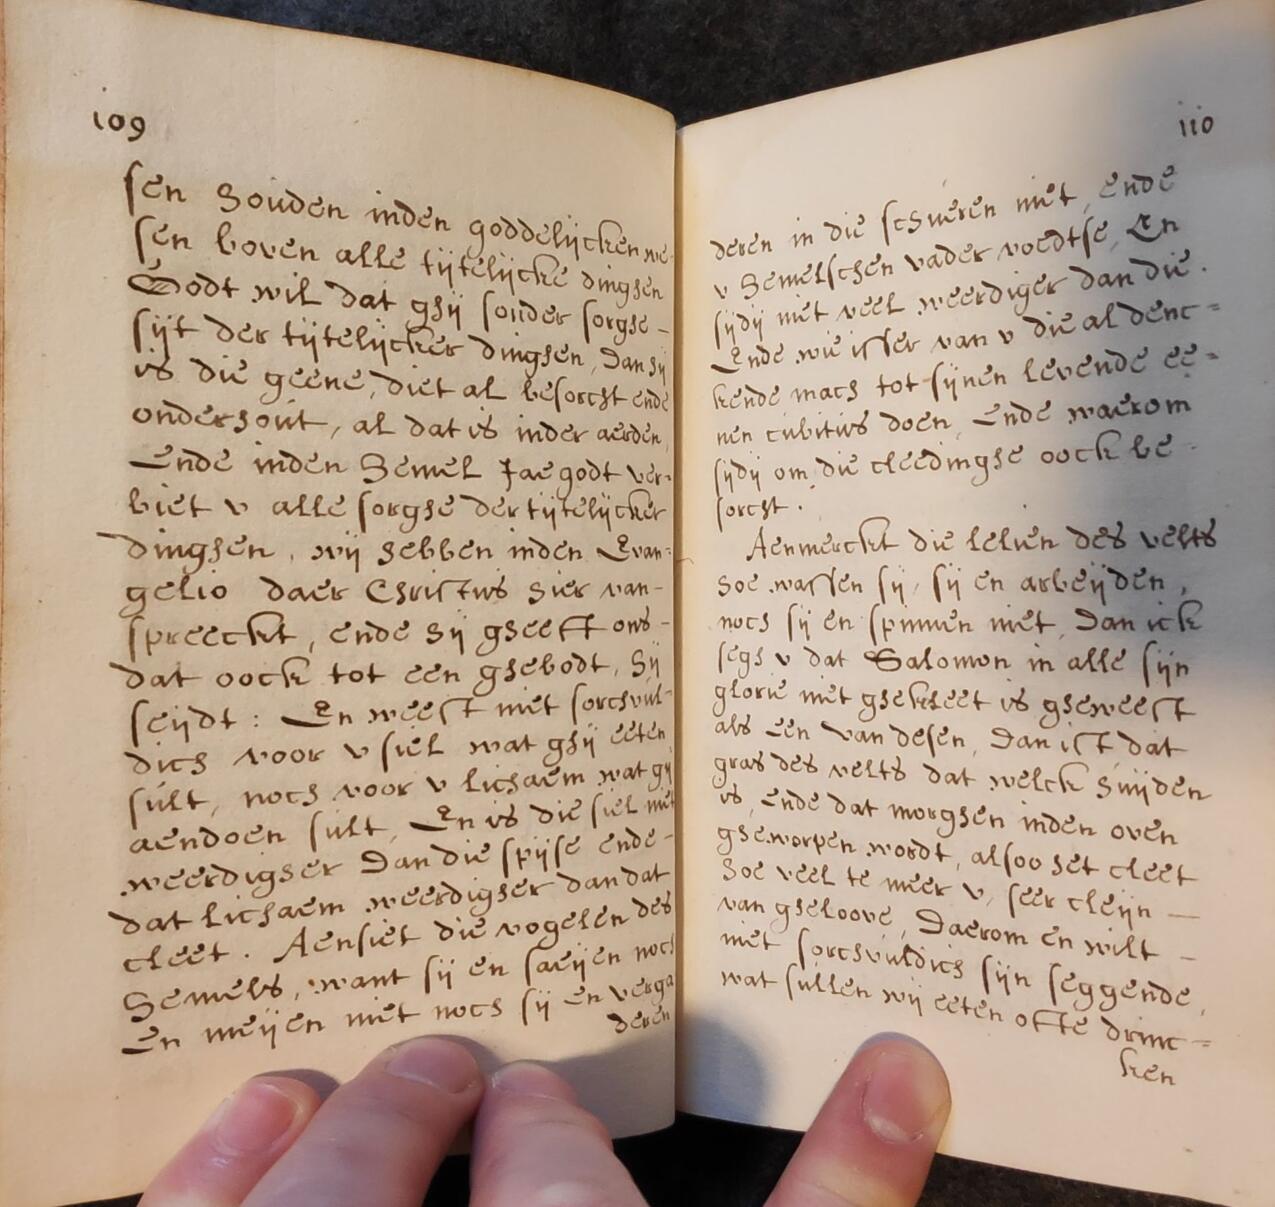 109
sen houden inden goddelijcken we-
sen boven alle tijtelijcke dinghen
Godt wil dat ghij sonder sorghe -
sijt der tijtelijcker dinghen, Dan hij
is die geene, diet al besorcht ende
onderhout, al dat is inder aerden,
Ende inden Hemel Jae godt ver-
biet v alle sorghe der tijtelijcker
dinghen, wij hebben inden Evan-
gelio daer Christus hier van-
spreeckt, ende hij gheeft ons -
dat oock tot een ghebodt, hij
seijdt : En weest niet sorchvul-
dich voor v siel wat ghij eeten
sult, noch voor v lichaem wat gij
aendoen sult, En is die siel niet
weerdigher Dan die spijse ende -
dat lichaem weerdigher dan dat
cleet. Aensiet die vogelen des
Hemels, want sij en saeijen noch
En meijen niet noch sij en verga
deren
110
deren in die schueren niet, ende
v Hemelschen vader voedtse, En
sijdij niet veel weerdiger dan die.
Ende wie isser van v die al denc-
kende mach tot sijnen levende ee-
nen cubitus doen, Ende waerom
sijdij om die cleedinghe oock be-
sorcht.
Aenmerckt die lelien des velts
hoe wassen sij, sij en arbeijden,
noch sij en spinnen niet, Dan ick
segh v dat Salomon in alle sijn
glorie niet ghekleet is gheweest
als een van desen, Dan ist dat
gras des velts dat welck huijden
is, ende dat morghen inden oven
gheworpen wordt, alsoo het cleet
hoe veel te meer v, seer cleijn -
van gheloove, Daerom en wilt -
niet sorchvuldich sijn seggende,
wat sullen wij eeten ofte drinc-
ken